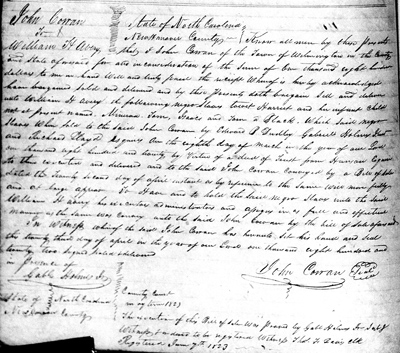 John Cowan
To
William H Avery
State of North Carolina
New Hanover County — Know all men by these Presents
that I John Cowan of the Town of Wilmington in the County
and State aforesaid for and in consideration of the Sum of One thousand eight hundred
dollars to me in hand Well and truly paid the receipt Whereof is hereby acknowledged
have bargained Sold and delivered and by these Presents doth bargain Sell and deliver
unto William H Avery the following negro Slaves to wit Harriet and her infant child
not at present named. Minerva Tom, Isaac and Sam a Black. Which Said negro
Slaves Were Sold to the Said John Cowan by Edward B Dudley Gabriel Holmes
and Richard Assignees On the eighth day of march in the year of our Lord
One thousand eight hundred and twenty by Virtue of a deed of
to them executed and delivered and to the said John Cowan Conveyed by a Bill of Sale
dated the twenty Second day of april instant as by reference to the Same Will more fully
and at large appear. To Have and to hold the Said negro Slaves unto the Said
William H Avery his executors administrators and assigns in as full and effectual
manner as the Same was Conveyed unto the Said John Cowan by the bill of Sale aforesaid
In Witness whereof the Said John Cowan has hereunto Set his hand and Seal
the twenty third day of april in the year of our Lord one thousand eight hundred and
twenty Signed Sealed & delivered
in presence of
Gabl Holmes Jr
John Cowan Seal
State of North Carolina
New Hanover County
County Court
1823
The execution of this Bill of Sale Was Proved by Gabl Holmes Jr
Witness, & ordered to be registered Witness Thos F Davis Clk
Registered June 7th 1823